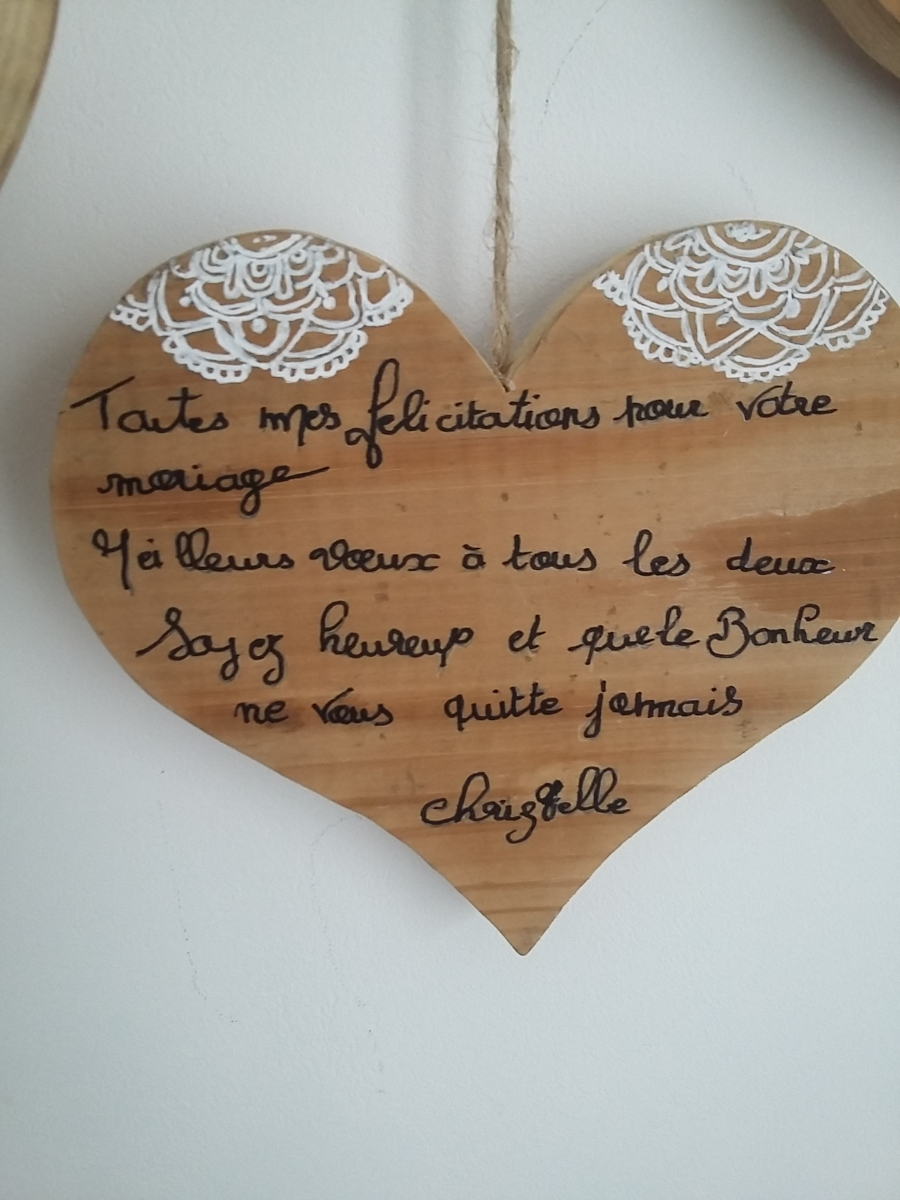 Toutes mes felicitations pour votre
mariage
Meilleurs vœux à tous les deux
Soyez heureux et que le Bonheur
ne vous quitte jamais
Christelle